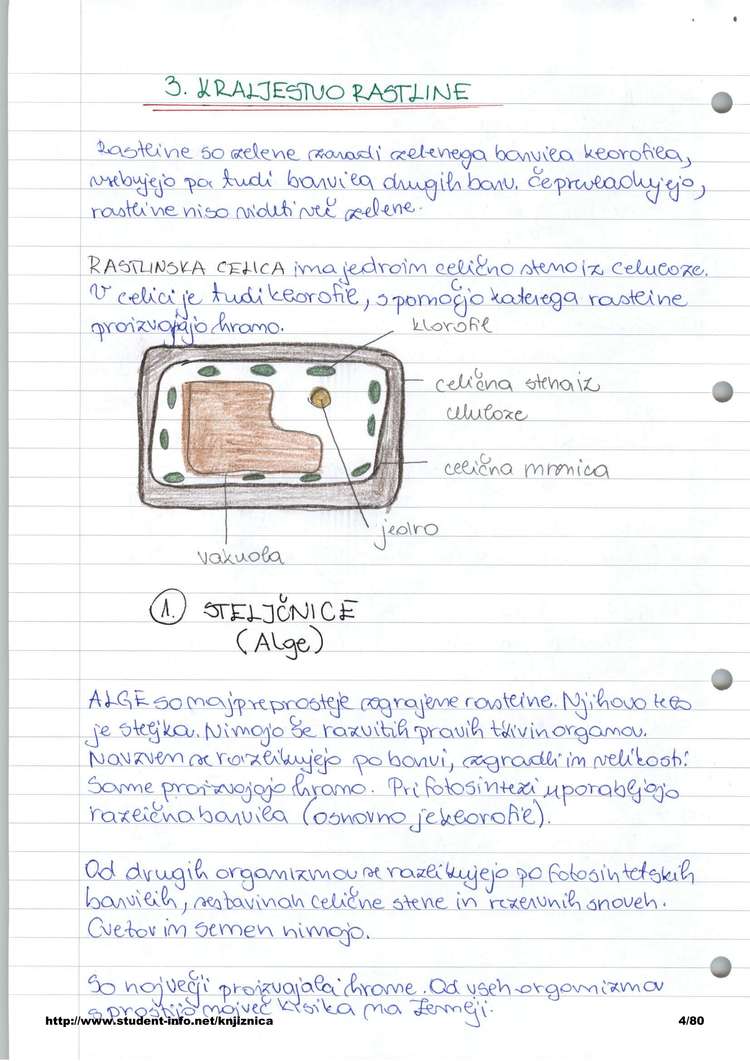 3. KRALJESTVO RASTLINE
Rastline so zelene zaradi zelenega barvila klorofila,
vsebujejo pa tudi barvila drugih barv. Če prevladujejo,
rastline niso videti več zelene.
RASTLINSKA CELICA ima jedro in celično steno iz celuloze.
V celici je tudi klorofil, s pomočjo katerega rastline
proizvajajo hrano.
klorofil
celična stena iz
celuloze
celična mrnica
jedro
vakuola
1. STELJČNICE
(Alge)
ALGE so najpreprosteje zgrajene rastline. Njihovo telo
je steljka. Nimajo še razvitih pravih tkiv in organov.
Navzven se razlikujejo po barvi, zgradbi in velikosti.
Same proizvajajo hrano. Pri fotosintezi uporabljajo
različna barvila (osnovno je klorofil).
Od drugih organizmov se razlikujejo po fotosintetskih
barvilih, sestavinah celične stene in rezervnih snoveh.
Cvetov in semen nimajo.
So največji proizvajalci hrane. Od vseh organizmov
sprostijo največ kisika na Zemlji.
http://www.student-info.net/knjiznica
4/80